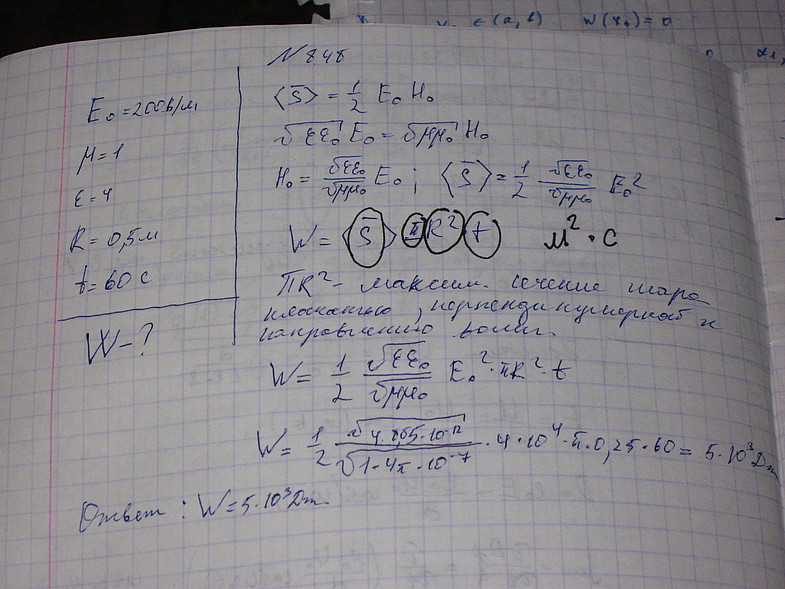 x₀ ∈ (a, b) W(x₀) = 0
N 848
E₀ = 200 В/м
μ = 1
ε = 4
R = 0,5 м
t = 60 с
W - ?
⟨S̄⟩ = 1/2 E₀ H₀
√εε₀ E₀ = √μμ₀ H₀
H₀ = √εε₀/√μμ₀ E₀ ; ⟨S̄⟩ = 1/2 √εε₀/√μμ₀ E₀²
W = ⟨S̄⟩ π R² t м² · с
πR² - максим. сечение шара
плоскостью, перпендикулярной к
направлению волны.
W = 1/2 √εε₀/√μμ₀ E₀² · πR² · t
W = 1/2 √4·8,85·10⁻¹²/√1·4π·10⁻⁷ · 4·10⁴·π·0,25·60 = 5·10³ Дж
Ответ : W = 5·10³ Дж